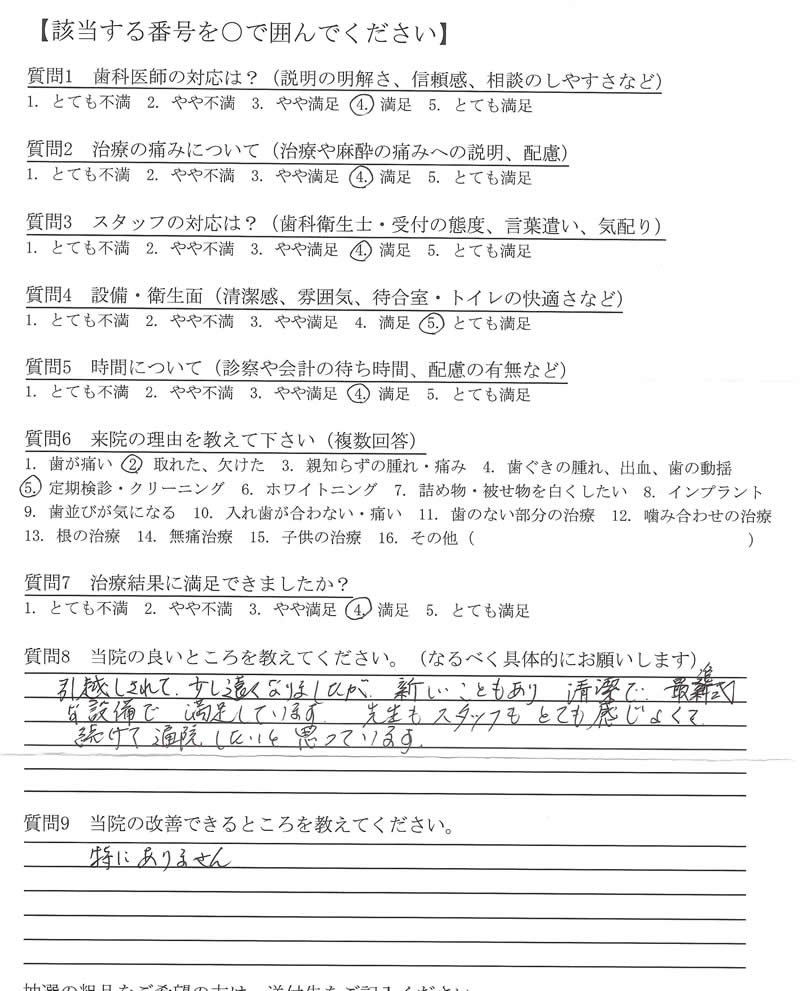 【該当する番号を〇で囲んでください】
質問1 歯科医師の対応は？（説明の明解さ、信頼感、相談のしやすさなど）
1. とても不満 2. やや不満 3. やや満足 4. 満足 5. とても満足
質問2 治療の痛みについて（治療や麻酔の痛みへの説明、配慮）
1. とても不満 2. やや不満 3. やや満足 4. 満足 5. とても満足
質問3 スタッフの対応は？（歯科衛生士・受付の態度、言葉遣い、気配り）
1. とても不満 2. やや不満 3. やや満足 4. 満足 5. とても満足
質問4 設備・衛生面（清潔感、雰囲気、待合室・トイレの快適さなど）
1. とても不満 2. やや不満 3. やや満足 4. 満足 5. とても満足
質問5 時間について（診察や会計の待ち時間、配慮の有無など）
1. とても不満 2. やや不満 3. やや満足 4. 満足 5. とても満足
質問6 来院の理由を教えて下さい（複数回答）
1. 歯が痛い 2. 取れた、欠けた 3. 親知らずの腫れ・痛み 4. 歯ぐきの腫れ、出血、歯の動揺
5. 定期検診・クリーニング 6. ホワイトニング 7. 詰め物・被せ物を白くしたい 8. インプラント
9. 歯並びが気になる 10. 入れ歯が合わない・痛い 11. 歯のない部分の治療 12. 噛み合わせの治療
13. 根の治療 14. 無痛治療 15. 子供の治療 16. その他（ ）
質問7 治療結果に満足できましたか？
1. とても不満 2. やや不満 3. やや満足 4. 満足 5. とても満足
質問8 当院の良いところを教えてください。（なるべく具体的にお願いします）
引越しされて、少し遠くなりましたが、新しいこともあり 清潔で、最新式
な設備で 満足しています。先生も スタッフも とても感じよくて、
続けて通院したいと思っています。
質問9 当院の改善できるところを教えてください。
特にありません